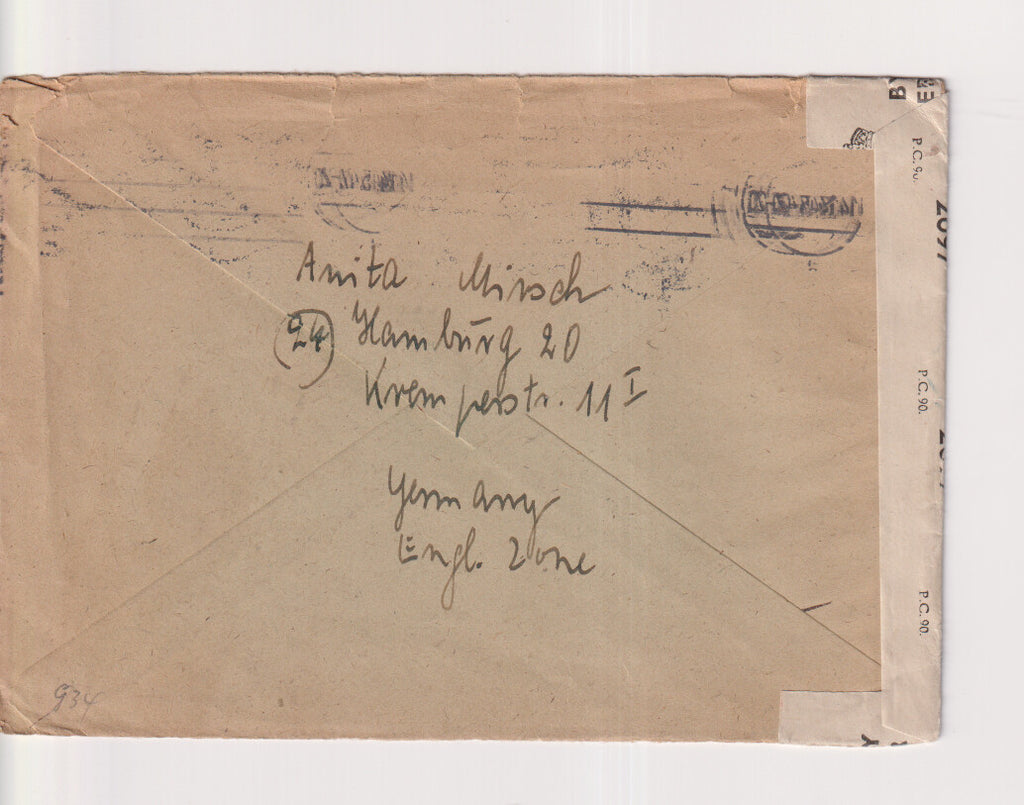 Anita Mirsch
(24) Hamburg 20
Kremperstr. 11 I
Germany
Engl. Zone
934
BY
P.C. 90.
2097
P.C. 90.
P.C. 90.